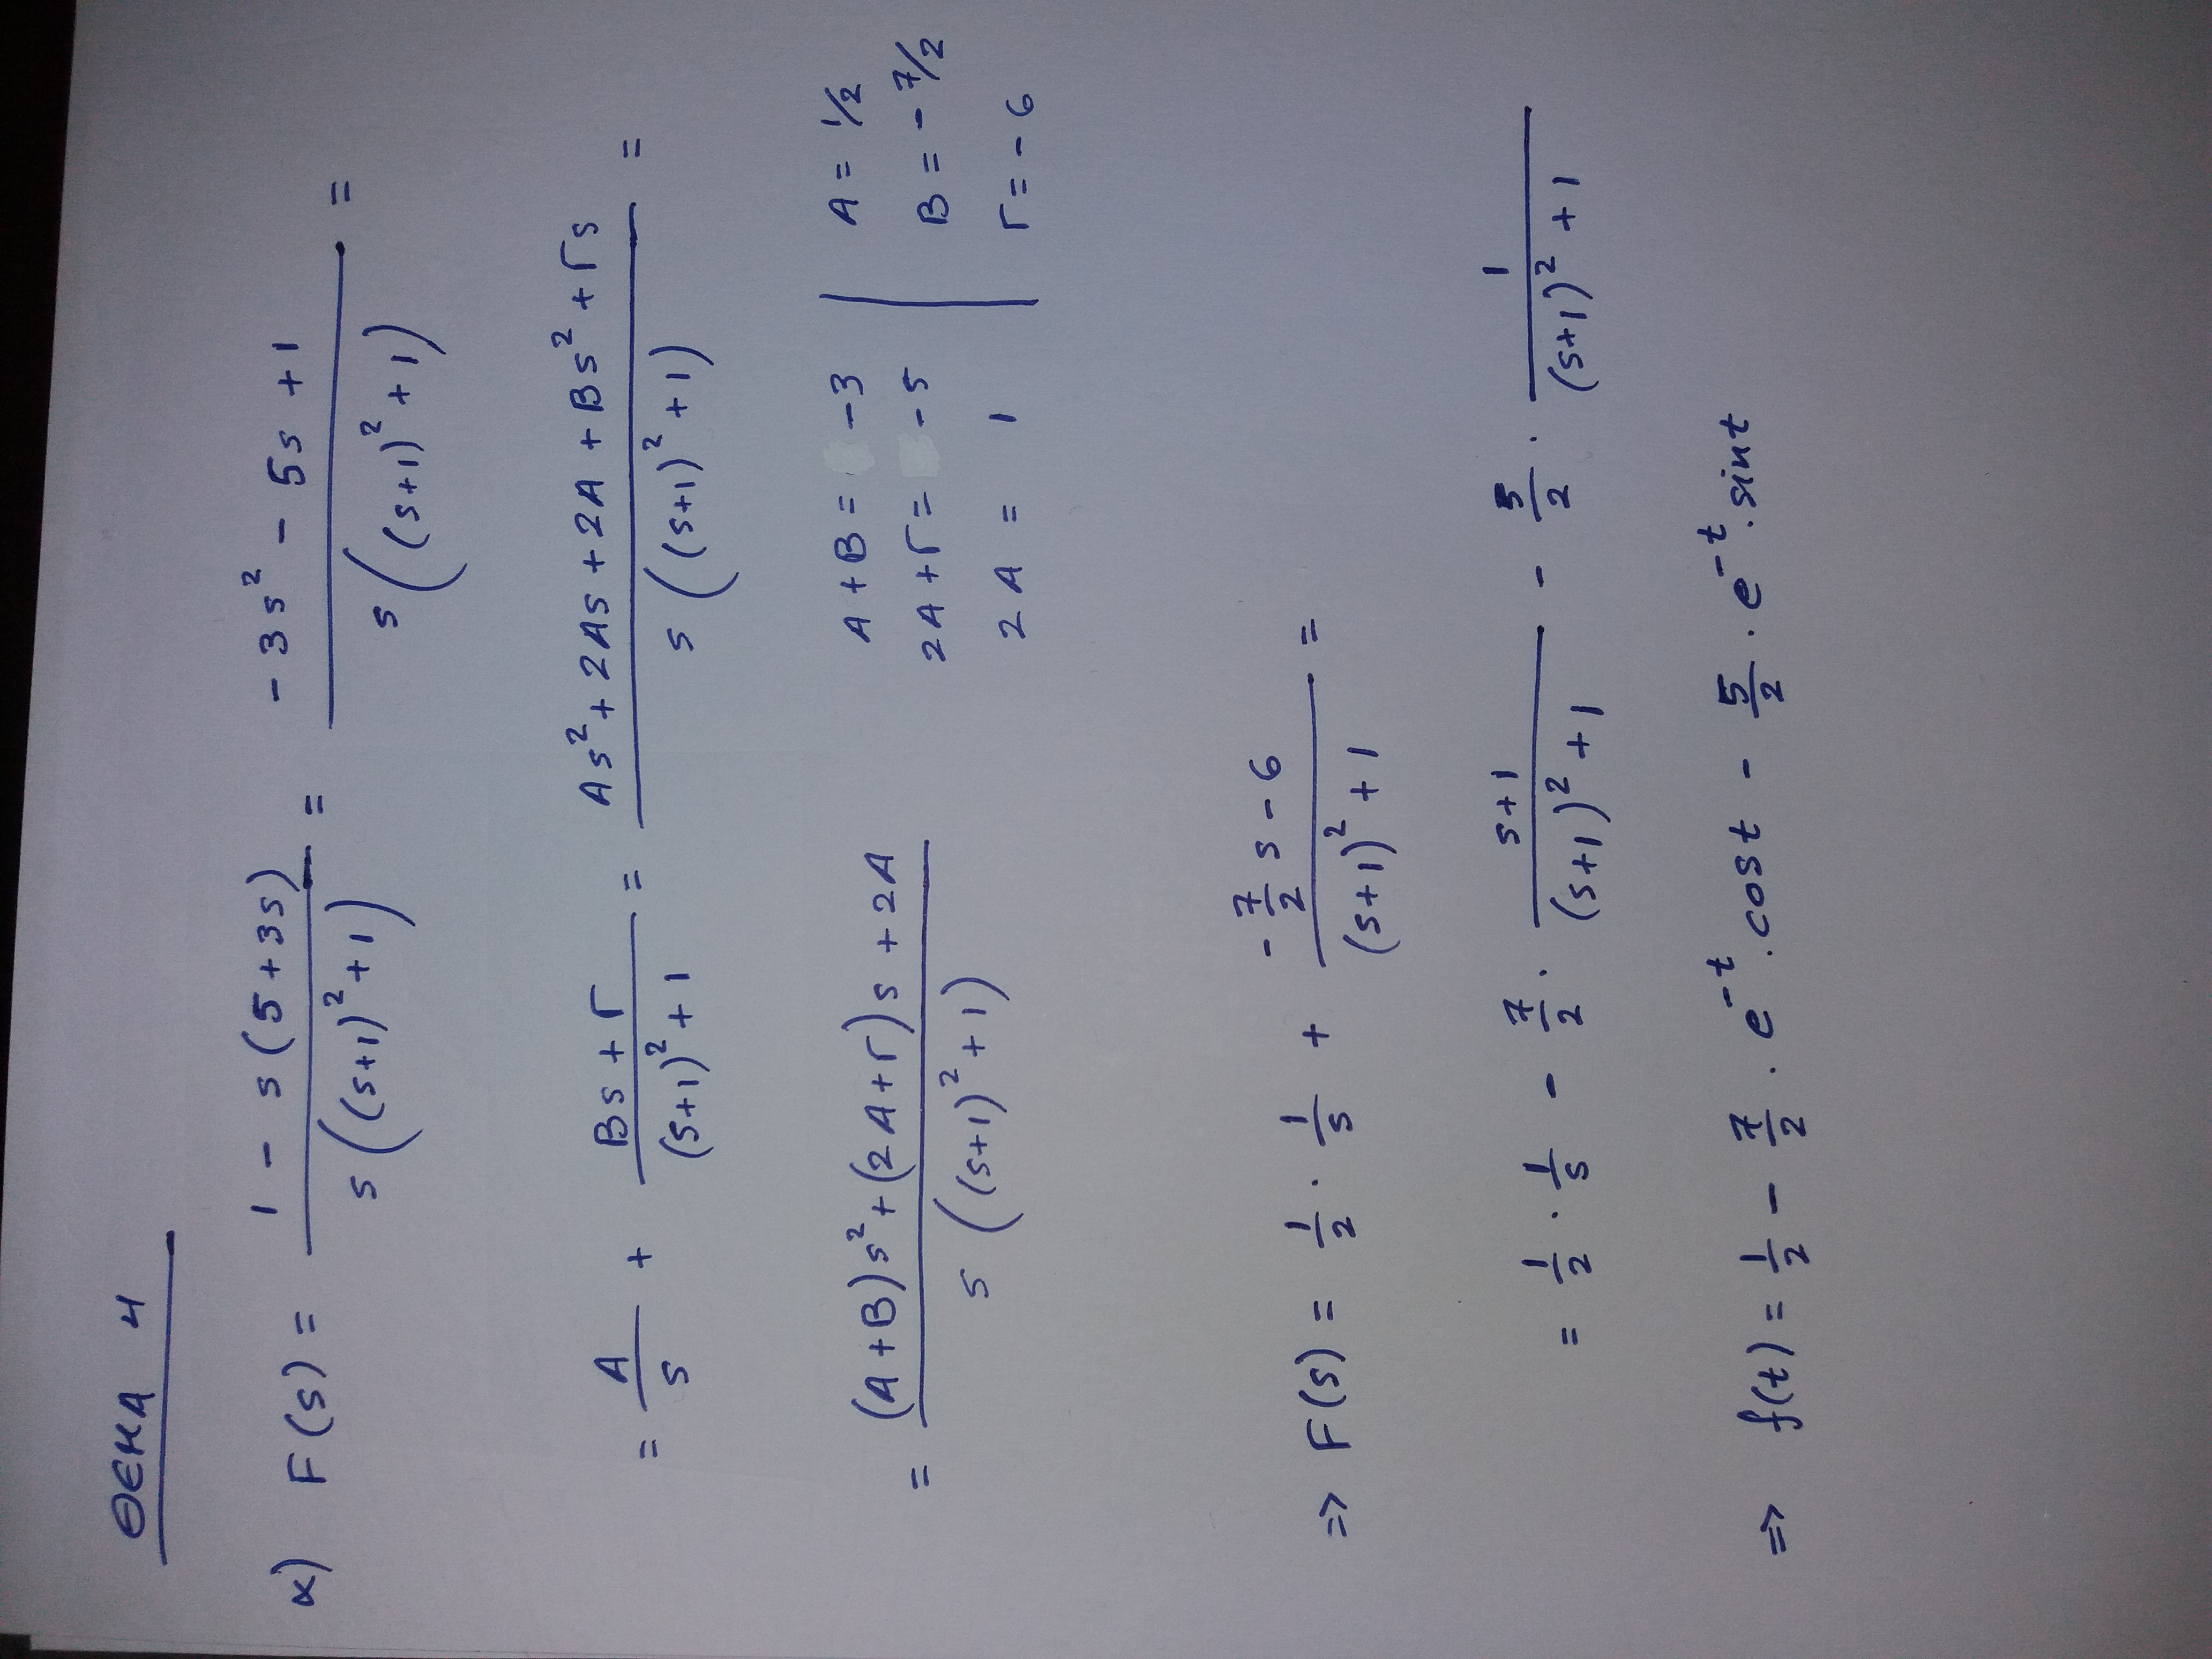 ΘΕΜΑ 4
α) F(s) = \frac{1 - s(5+3s)}{s((s+1)^2+1)} = \frac{-3s^2 - 5s + 1}{s((s+1)^2+1)} =
= \frac{A}{s} + \frac{Bs+Γ}{(s+1)^2+1} = \frac{As^2+2As+2A+Bs^2+Γs}{s((s+1)^2+1)} =
= \frac{(A+B)s^2+(2A+Γ)s+2A}{s((s+1)^2+1)}
A+B = -3 | A = 1/2
2A+Γ = -5 | B = -7/2
2A = 1 | Γ = -6
=> F(s) = \frac{1}{2} · \frac{1}{s} + \frac{-\frac{7}{2}s-6}{(s+1)^2+1} =
= \frac{1}{2} · \frac{1}{s} - \frac{7}{2} · \frac{s+1}{(s+1)^2+1} - \frac{5}{2} · \frac{1}{(s+1)^2+1}
=> f(t) = \frac{1}{2} - \frac{7}{2} · e^{-t} · cost - \frac{5}{2} · e^{-t} · sint